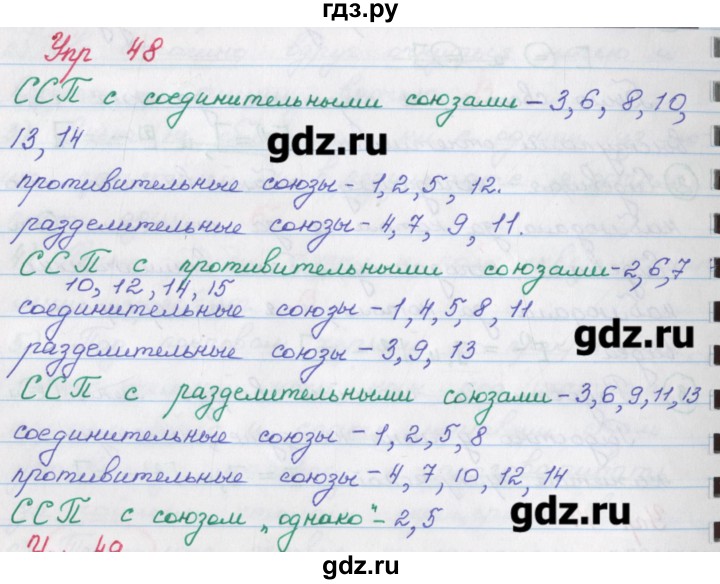 гдз.ру
Упр 48
ССП с соединительными союзами – 3, 6, 8, 10,
13, 14
gdz.ru
противительные союзы – 1, 2, 5, 12.
разделительные союзы – 4, 7, 9, 11.
ССП с противительными союзами – 2, 6, 7
10, 12, 14, 15
соединительные союзы – 1, 4, 5, 8, 11
gdz.ru
разделительные союзы – 3, 9, 13
ССП с разделительными союзами – 3, 6, 9, 11, 13
соединительные союзы – 1, 2, 5, 8
противительные союзы – 4, 7, 10, 12, 14
ССП с союзом „однако" – 2, 5
gdz.ru
gdz.ru